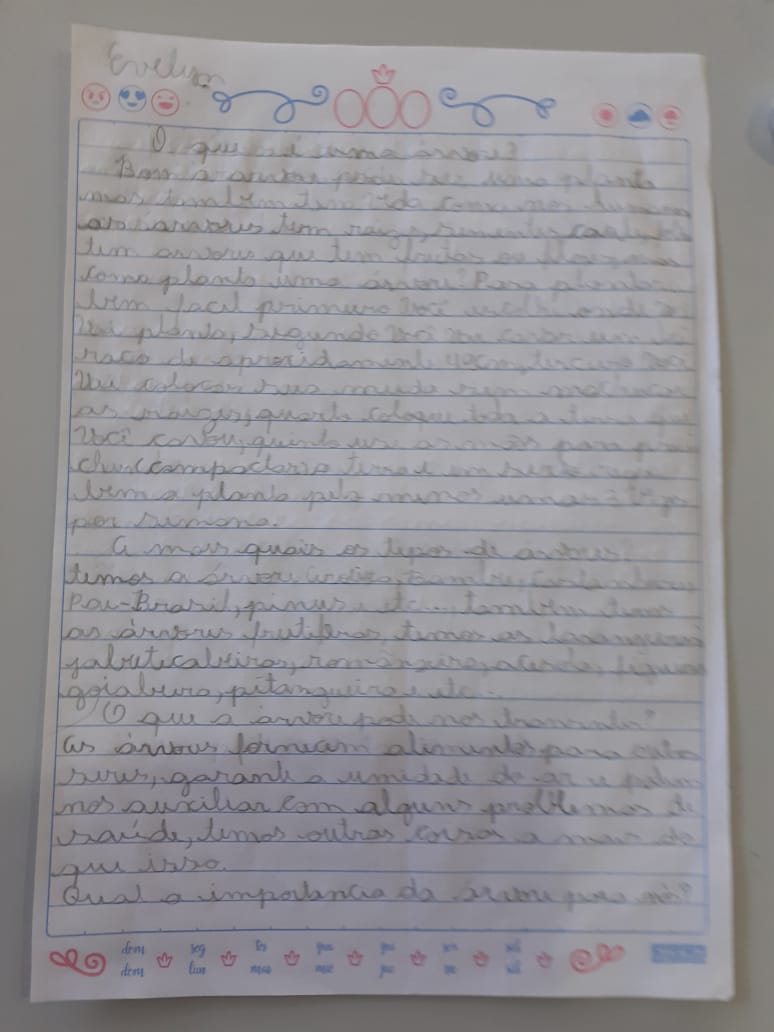 Evelyn
O que é uma árvore?
Bom a árvore pode ser uma planta
mas também tem vida como nos humanos
as árvores tem raiz, sementes, caule,
tem arvores que tem frutas ou flores mas
como planta uma árvore? Para planta
bem facil primeiro você escolhe onde
vai planta, segundo você vai cavar um bu
raco de aproxidamente 40cm, terceiro você
vai colocar sua muda sem
as raizes, quarto coloque toda a terra que
você cavou, quinto use as mãos para
compactar a terra e em
bem a planta pelo menos umas 3 vezes
por semana.
A mais quais os tipos de árvores?
temos a árvore Bambu,
Pau-Brasil, pinus e etc..., também temos
as árvores frutiferas, temos as laranjeiras
jabuticabeiras, acerola, figueira
goiabeira, pitangueira e etc...
O que a árvore pode nos transmitir?
as árvores fornecem alimentos para outros
seres, garante a umidade do ar e podem
nos auxiliar com alguns problemas de
saúde, temos outras coisa a mais do
que isso.
Qual a importancia da árvore para nós?
dom seg ter qua qui sex sáb
dom lun mar mié jue vie sáb